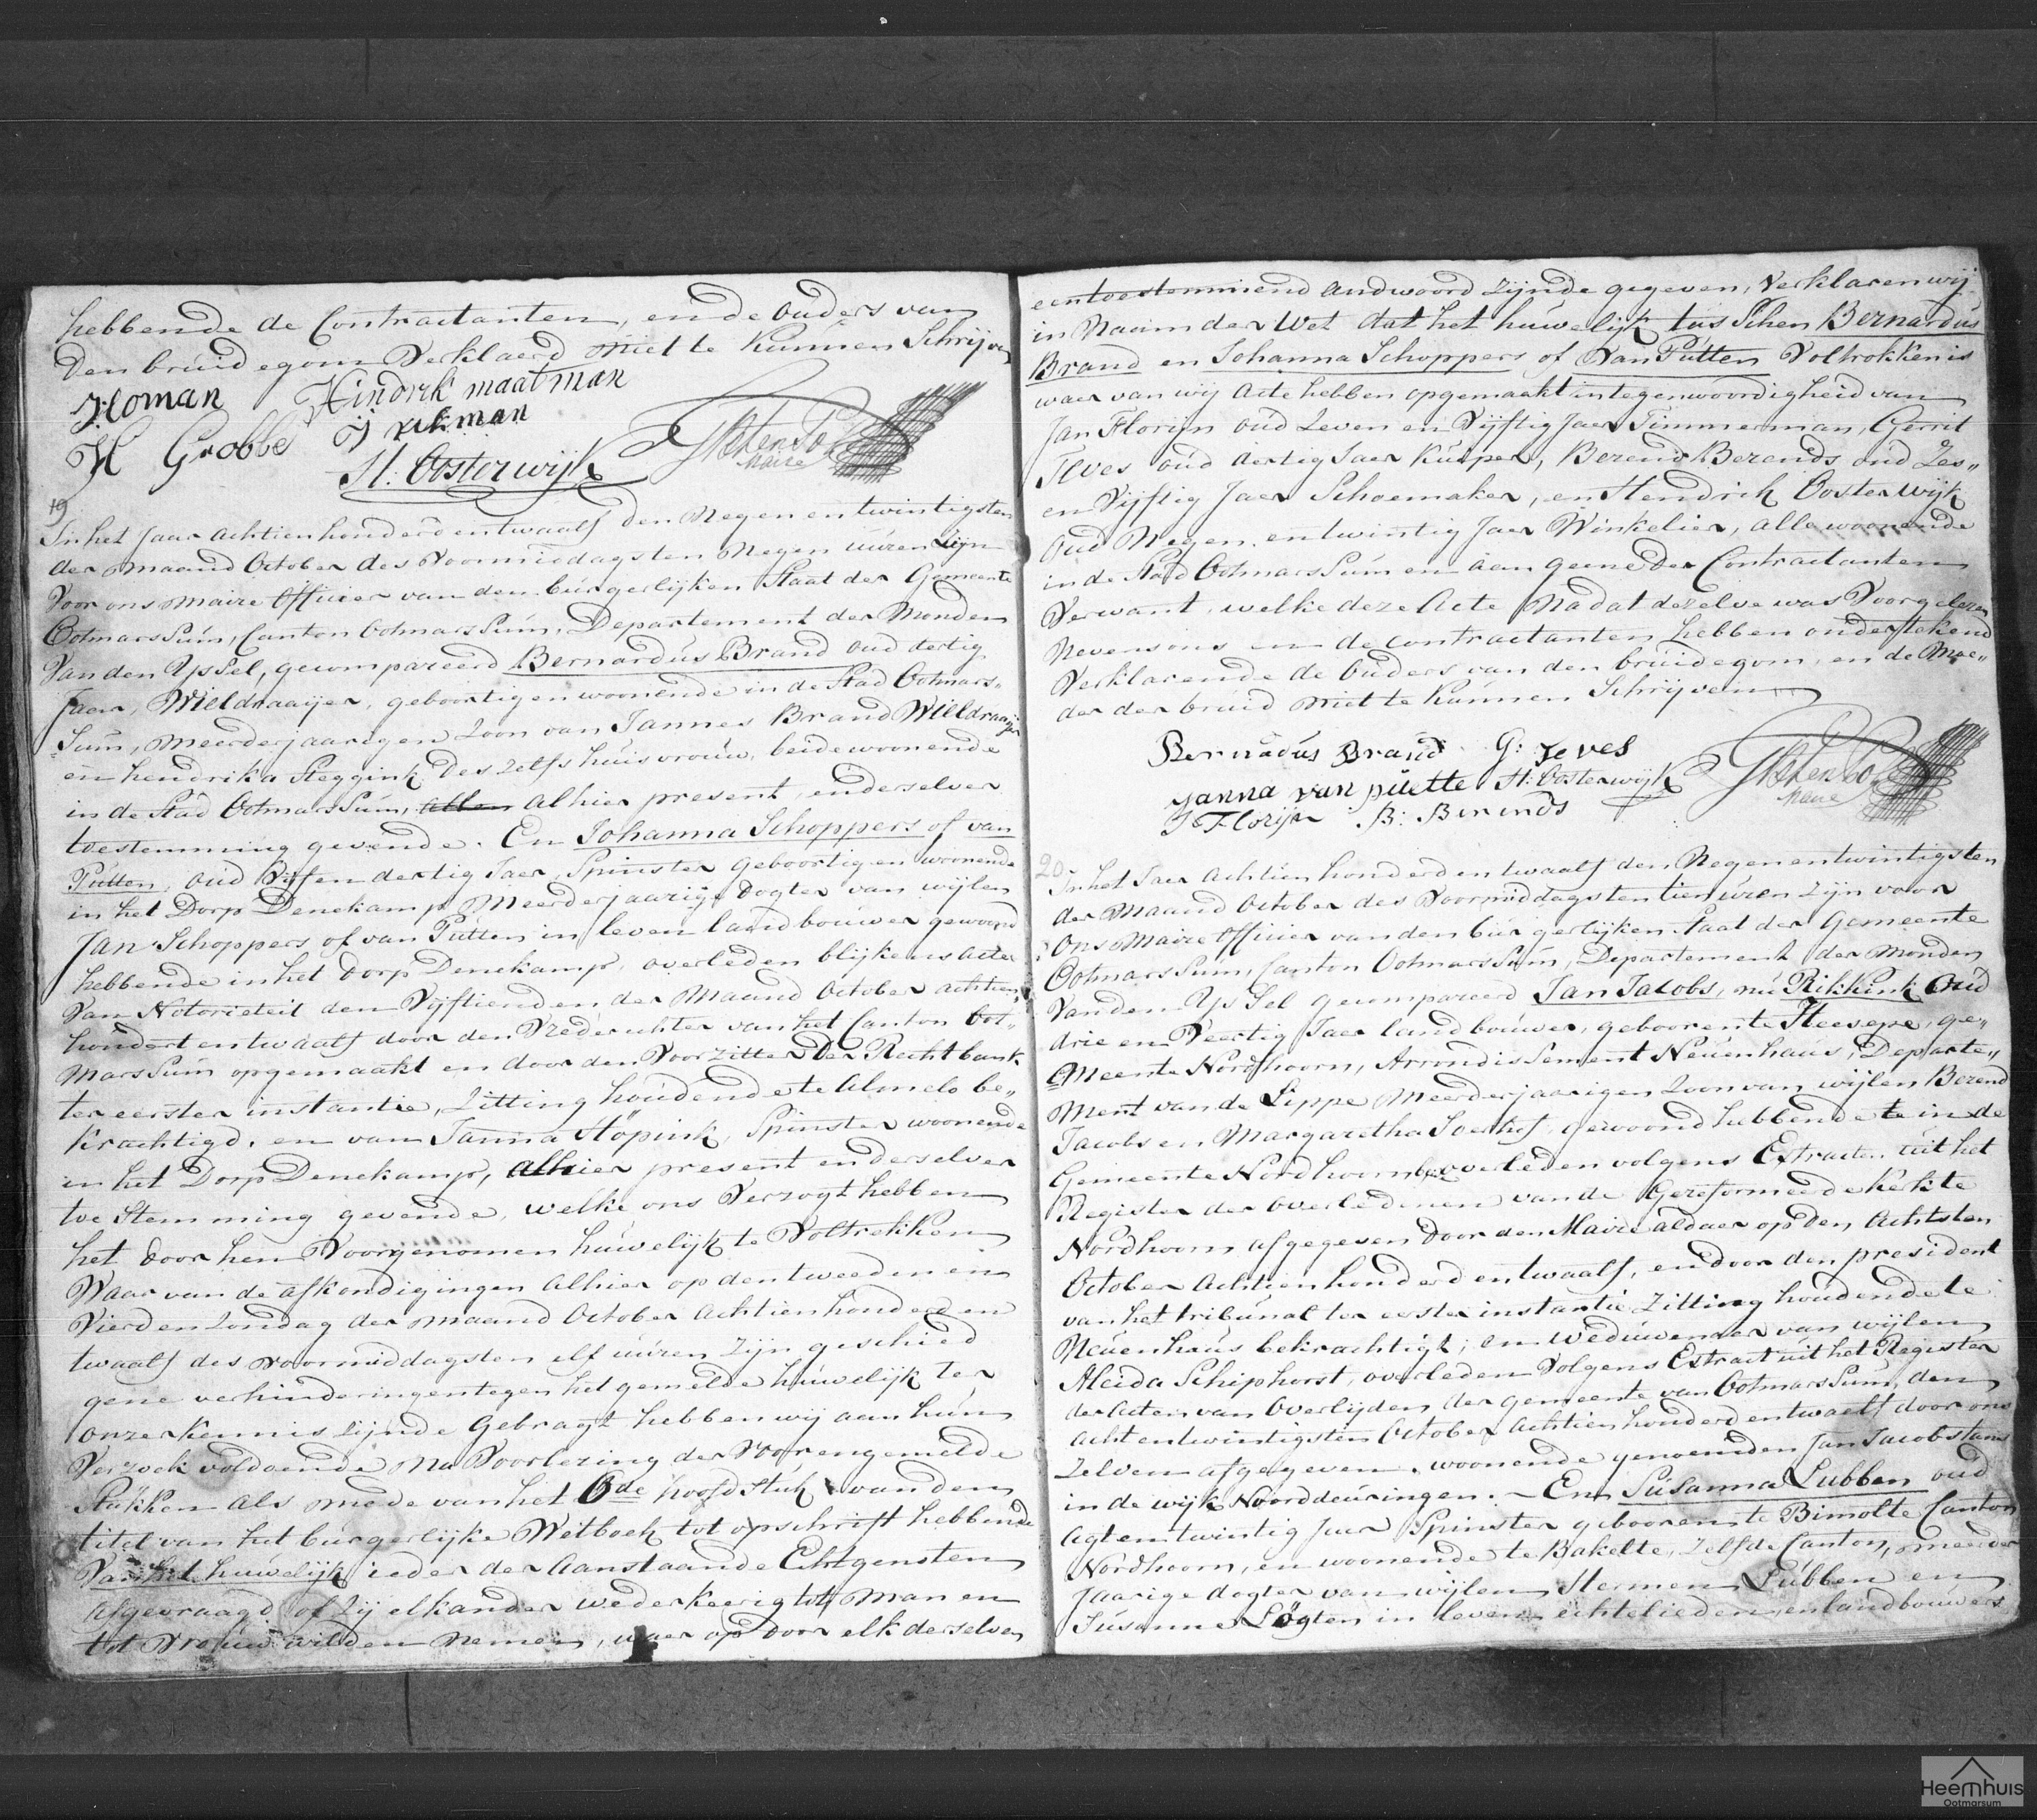 hebbende de Contractanten, en de Ouders van
den bruidegom Verklaerd niet te kunnen Schrijven
Homan Hindrik maatman
H Grobbe
H: Oosterwijk
Maire
19
In het Jaar achtien honderd en twaalf den Negen en twintigsten
der maand October des Voormiddags ten Negen uuren Zijn
Voor ons Maire Officier van den burgerlijken Staat der Gemeente
OotmarsSum, Canton OotmarsSum, Departement der Monden
Van den YsSel, gecompareerd Bernardus Brand oud dertig
Jaer, Wieldraaijer, geboortig en woonende in de Stad Ootmars„
Sum, meerderjaarigen Zoon van Jannes Brand Wieldraaijer
en hendrika Steggink des zelfs huisvrouw, beide woonende
in de Stad OotmarsSum, alhier present, en derselver
toestemming gevende. En Johanna Schoppers of van
Putten, oud Vijf en dertig Jaer, Spinster geboortig en woonende
in het Dorp Denekamp Meerderjaarige Dogter van wijlen
Jan Schoppers of van Putten in leven landbouwer gewoond
hebbende in het dorp Denekamp, overleden blijkens acte
Van Notorieteit den Vijftienden der Maand October achtien
hondert en twaalf door den Vrederichter van het Canton Oot„
marsSum opgemaakt en door den Voorzitter der Rechtbank
ter eerster instantie, Zitting houdende te Almelo be„
krachtigd. en van Janna Höpink, Spinster woonende
in het Dorp Denekamp, alhier present en derselver
toe Stemming gevende, welke ons Verzogt hebben
het door hen Voorgenomen huwelijk te Voltrekken
Waar van de afkondigingen alhier op den tweeden en
Vierden Zondag der maand October achtien honderd en
twaalf des voormiddags ten elf uuren Zijn geschied
gene verhinderingen tegen het gemelde huwelijk ter
onzer Kennis Zijnde Gebragt hebben wij aan hun
Verzoek voldoende na Voorlezing der Voorengemelde
Stukken als mede van het 6de hoofdstuk van den
titel van het burgerlijke Wetboek tot opschrift hebbende
Van het huwelijk ieder der Aanstaande Echtgenoten
afgevraagd of zij elkander wederkeerig tot Man en
tot Vrouw wilden Nemen, waer op door elk derselven
een toestemmend andwoord zijnde gegeven, Verklaren wij
in Naam der Wet dat het huwelijk tusSchen Bernardus
Brand en Johanna Schoppers of Van Putten Voltrokken is
waer van wij Acte hebben opgemaakt in tegenwoordigheid van
Jan Florijn oud Zeven en Vijftig Jaer Timmerman, Gerrit
Jeves oud dertig Jaer Kuiper, Berend Berends oud Zes„
en Vijftig Jaer Schoemaker, en Hendrik Oosterwijk
Oud Negen en twintig Jaer Winkelier, alle woonende
in de Stad OotmarsSum en aan geene der Contractanten
Verwant, welke deze Acte Nadat dezelve was Voorgelezen
Nevens ons en de contractanten hebben ondertekend
Verklarende de Ouders van den bruidegom, en de Moe„
der der bruid niet te kunnen Schrijven
Bernadus Brand G: Jeves
Janna van puette H: Oosterwijk
J Florijn B: Berends
Maire
20
In het Jaer Achtien honderd en twaalf den Negen en twintigsten
der Maand October des Voormiddags ten tien uren zijn voor
Ons Maire Officier van den burgerlijken Staat der Gemeente
OotmarsSum, Canton OotmarsSum, Departement der Monden
Van den YsSel gecompareerd Jan Jacobs, nu Rikkink Oud
drie en Veertig Jaer landbouwer, geboren te Heesepe, ge„
Meente Nordhoorn, Arrondissement Neuenhaus, Departe„
Ment van de Lippe Meerderjaarigen Zoon van wijlen Berend
Jacobs en Margaretha Soerhof gewoond hebbende te in de
Gemeente Nordhoorn overleden volgens Extracten uit het
Register der Overledenen van de Gereformeerde Kerk te
Nordhoorn afgegeven door den Maire aldaer op den Achtsten
October Achtien honderd en twaalf, en door den president
van het tribunal ter eerster instantie Zitting houdende te
Neuenhaus bekrachtigt; en weduwenaer van wijlen
Aleida Schiphorst, overleden Volgens Extract uit het Register
der Acten van Overlijden der gemeente van OotmarsSum, den
acht en twintigsten October achtien honderd en twaelf door ons
Zelven afgegeven. woonende genoemden Jan Jacobs thans
in de wijk Noorddeuringen. – En Susanna Lubben oud
Agt en twintig Jaer Spinster geboren te Bimolte Canton
Nordhoorn, en woonende te Bakelte, Zelfde Canton, meerder
Jaarige dogter van wijlen Hermen Lubben en
Susanne Lögten in leven echtelieden en landbouwers
Heemhuis
Ootmarsum